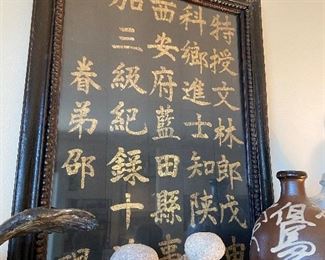 特授文林郎戊
科鄉進士知陝
西安府藍田縣事
加三級紀錄十
眷弟邵